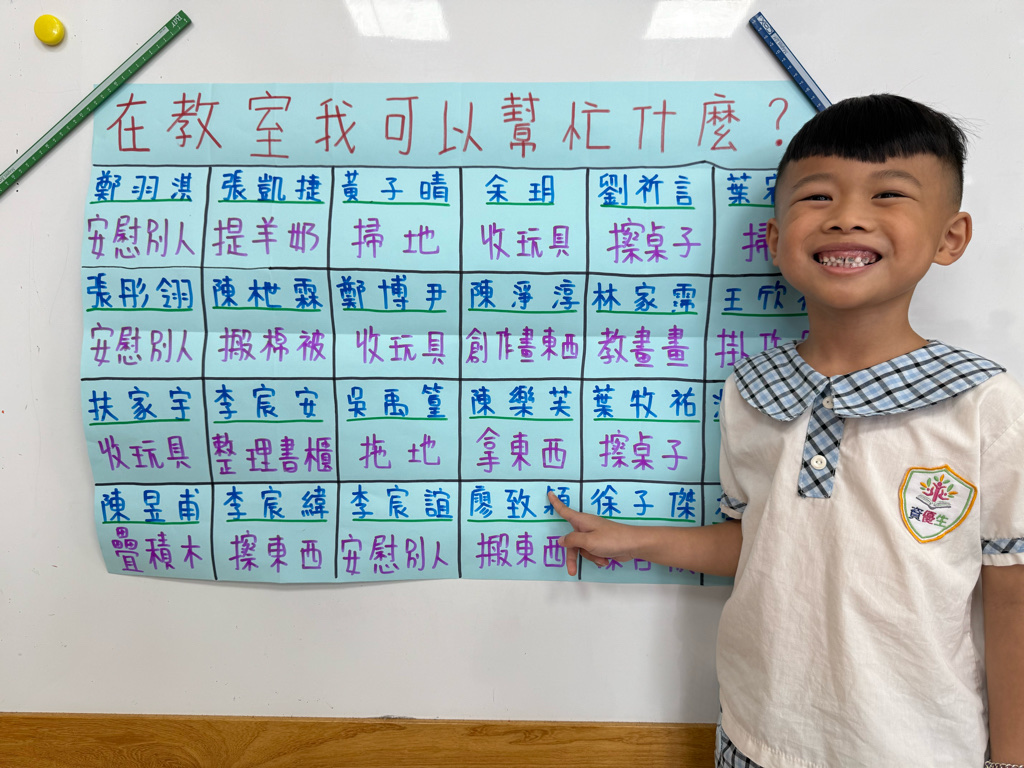 在教室我可以幫忙什麼？
鄭羽淇 張凱捷 黃子晴 余玥 劉祈言 葉
安慰別人 提羊奶 掃地 收玩具 擦桌子 掃
張彤翎 陳枻霖 鄭博尹 陳淨淳 林家霈 王欣
安慰別人 搬棉被 收玩具 創作畫東西 教畫畫 掛
扶家宇 李宸安 吳禹篁 陳樂芙 葉牧祐
收玩具 整理書櫃 拖地 拿東西 擦桌子
陳昱甫 李宸緯 李宸誼 廖致穎 徐子傑
疊積木 擦東西 安慰別人 搬東西
資優生